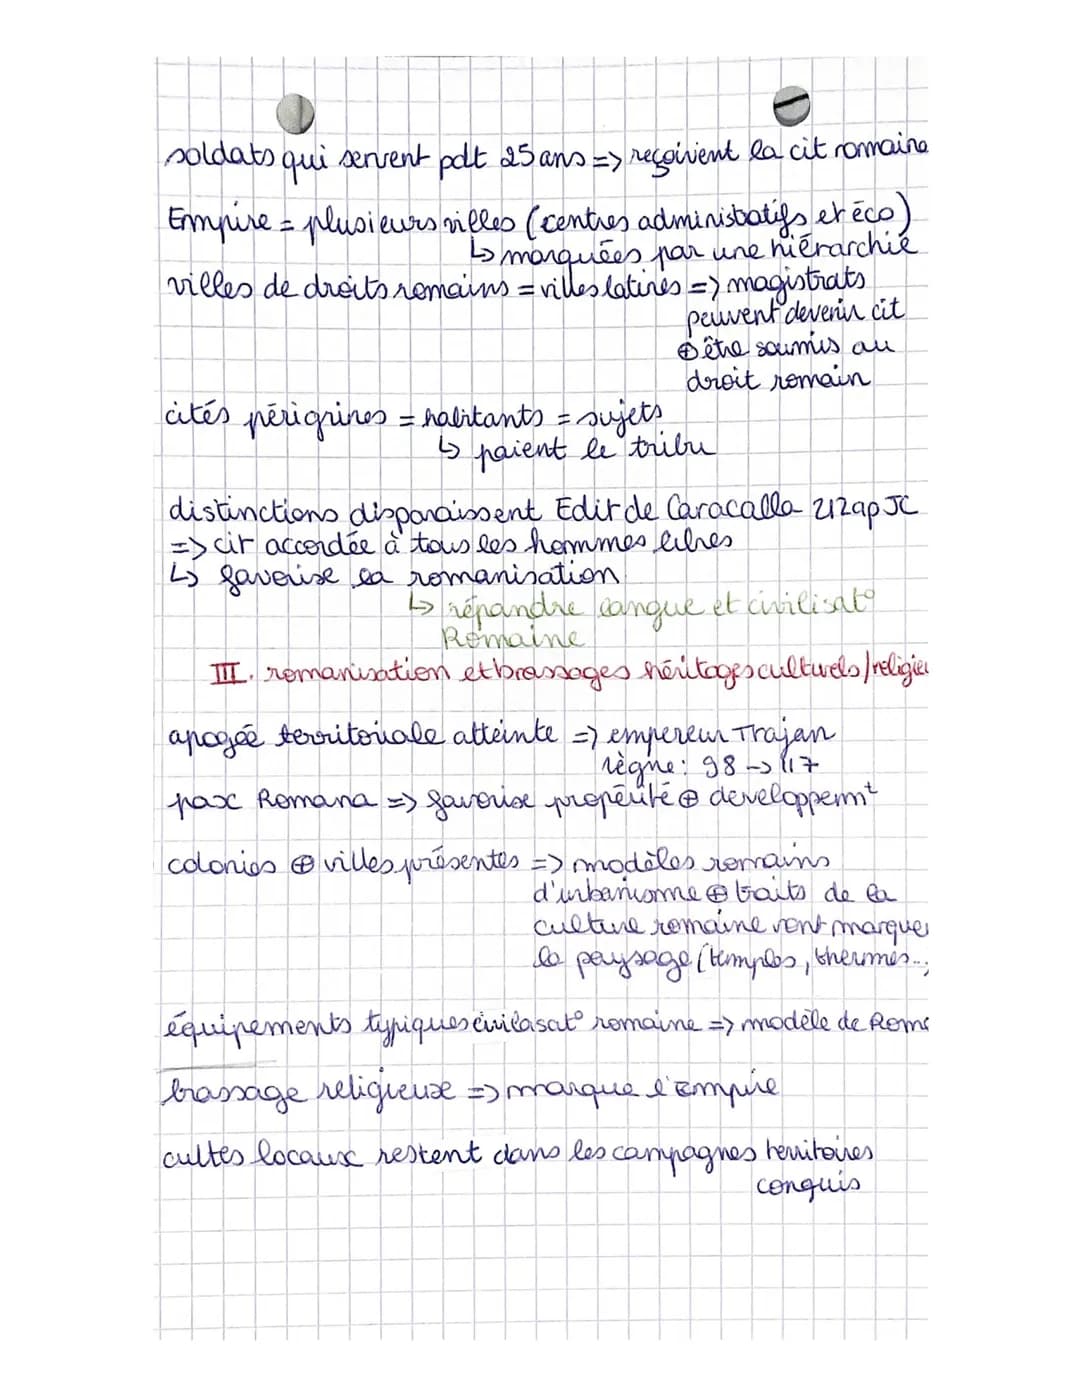 soldats qui servent pdt 25 ans => reçoivient la cit romaine
Empire = plusieurs villes (centres administratifs et éco)
↳ marquées par une hiérarchie
villes de droits romains = villes latines => magistrats
peuvent devenir cit
⊕ être soumis au
droit romain
cités périgrines = habitants = sujets
↳ paient le tribu
distinctions disparaissent Edit de Caracalla 212 ap JC
=> cit accordée à tous les hommes libres
↳ favorise la romanisation
↳ répandre langue et civilisat°
Romaine
III. romanisation et brassages héritages culturels/religieu
apogée territoriale atteinte => empereur Trajan
règne : 98 -> 117
pax Romana => favorise propérité ⊕ developpemt
colonies ⊕ villes présentes => modèles romains
d'urbanisme ⊕ traits de la
culture romaine vont marquer
le paysage (temples, thermes...
équipements typiques civilasat° romaine => modèle de Rome
brassage religieux => marque l'empire
cultes locaux restent dans les campagnes territoires
conquis